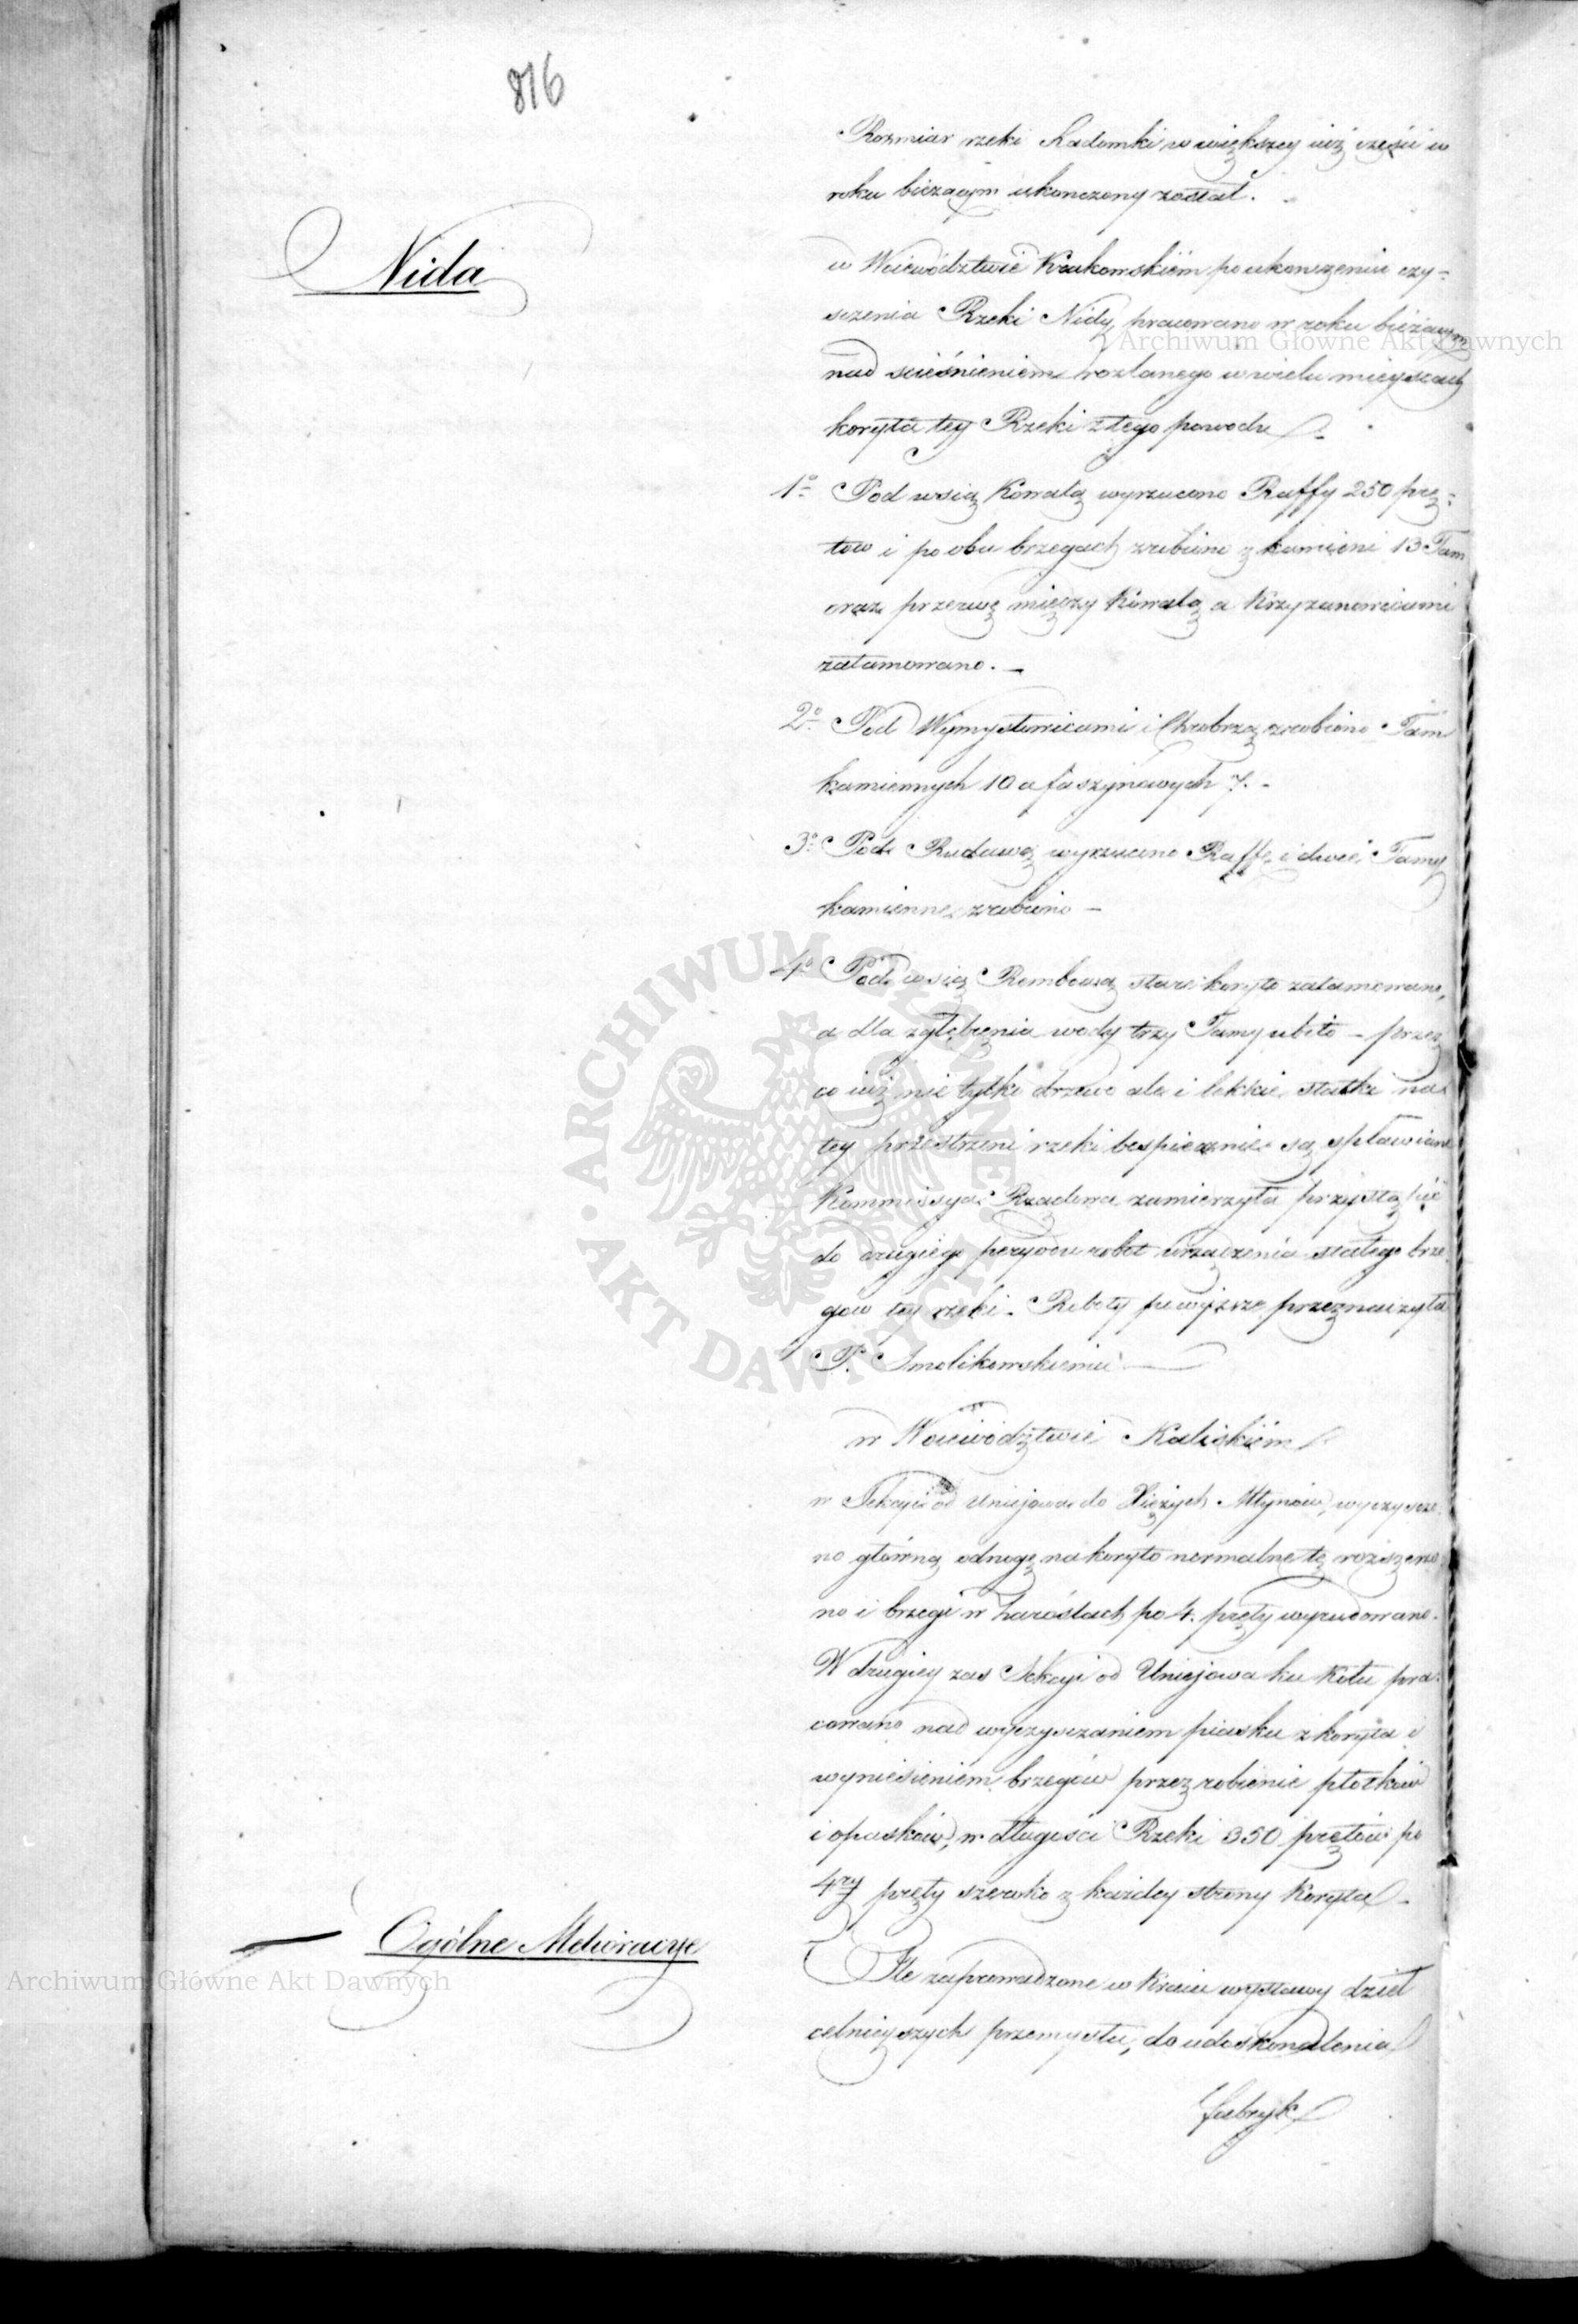 816
Rozmiar rzeki Radomki w większey iuż części w
roku bieżącym ukończony został.
Nida
w Woiewództwie Krakowskiem po ukończeniu czy-
szczenia Rzeki Nidy, pracowano w roku bieżącym
nad ścieśnieniem rozlanego w wielu mieyscach
koryta tey Rzeki z tego powodu
1o Pod wsią Kowalą wyrzucono Raffy 250 prę-
tow i po obu brzegach zrobiono z kamieni 13 Tam
oraz przerwę między Kowalą a Krzyżanowicami
zatamowano. —
2o Pod Wymysłowicami i Chrobrzą zrobiono Tam
kamiennych 10 a faszynowych 7. -
3o Pod Rudawą wyrzucono Raffę i dwie Tamy
kamienne zrobiono —
4o Pod wsią Rembową stare koryto zatamowano,
a dla zgłębienia wody trzy Tamy ubito — przez
co iuż nie tylko drzewo ale i lekkie statki na
tey przestrzeni rzeki bespiecznie są spławiane
Kommissya Rządowa zamierzyła przystąpić
do drugiego peryodu robot urządzenia stałego brze-
gów tey rzeki. Roboty powyższe przeznaczyła
P. Smolikowskiemu —
w Woiewództwie Kaliskiem
w Sekcyi od Uniejowa do Xiężych Młynów, wyczyszczo-
no główną odnogę na koryto normalne tę rozszerzo-
no i brzegi w zaroślach po 4. pręty wyrudowano.
W drugiey zas Sekcyi od Uniejowa ku Kołu pra-
cowano nad wyczyszczaniem piasku z koryta i
wyniesieniem brzegów przez robienie płotków
i opasków, w długości Rzeki 350 prętów po
4ry pręty szeroko z każdey strony Koryta. -
Ogólne Melioracye
Ile zaprowadzone w Kraiu wystawy dzieł
celnieyszych przemysłu, do udoskonalenia
fabryk
Archiwum Główne Akt Dawnych
Archiwum Główne Akt Dawnych
ARCHIWUM GŁÓWNE AKT DAWNYCH